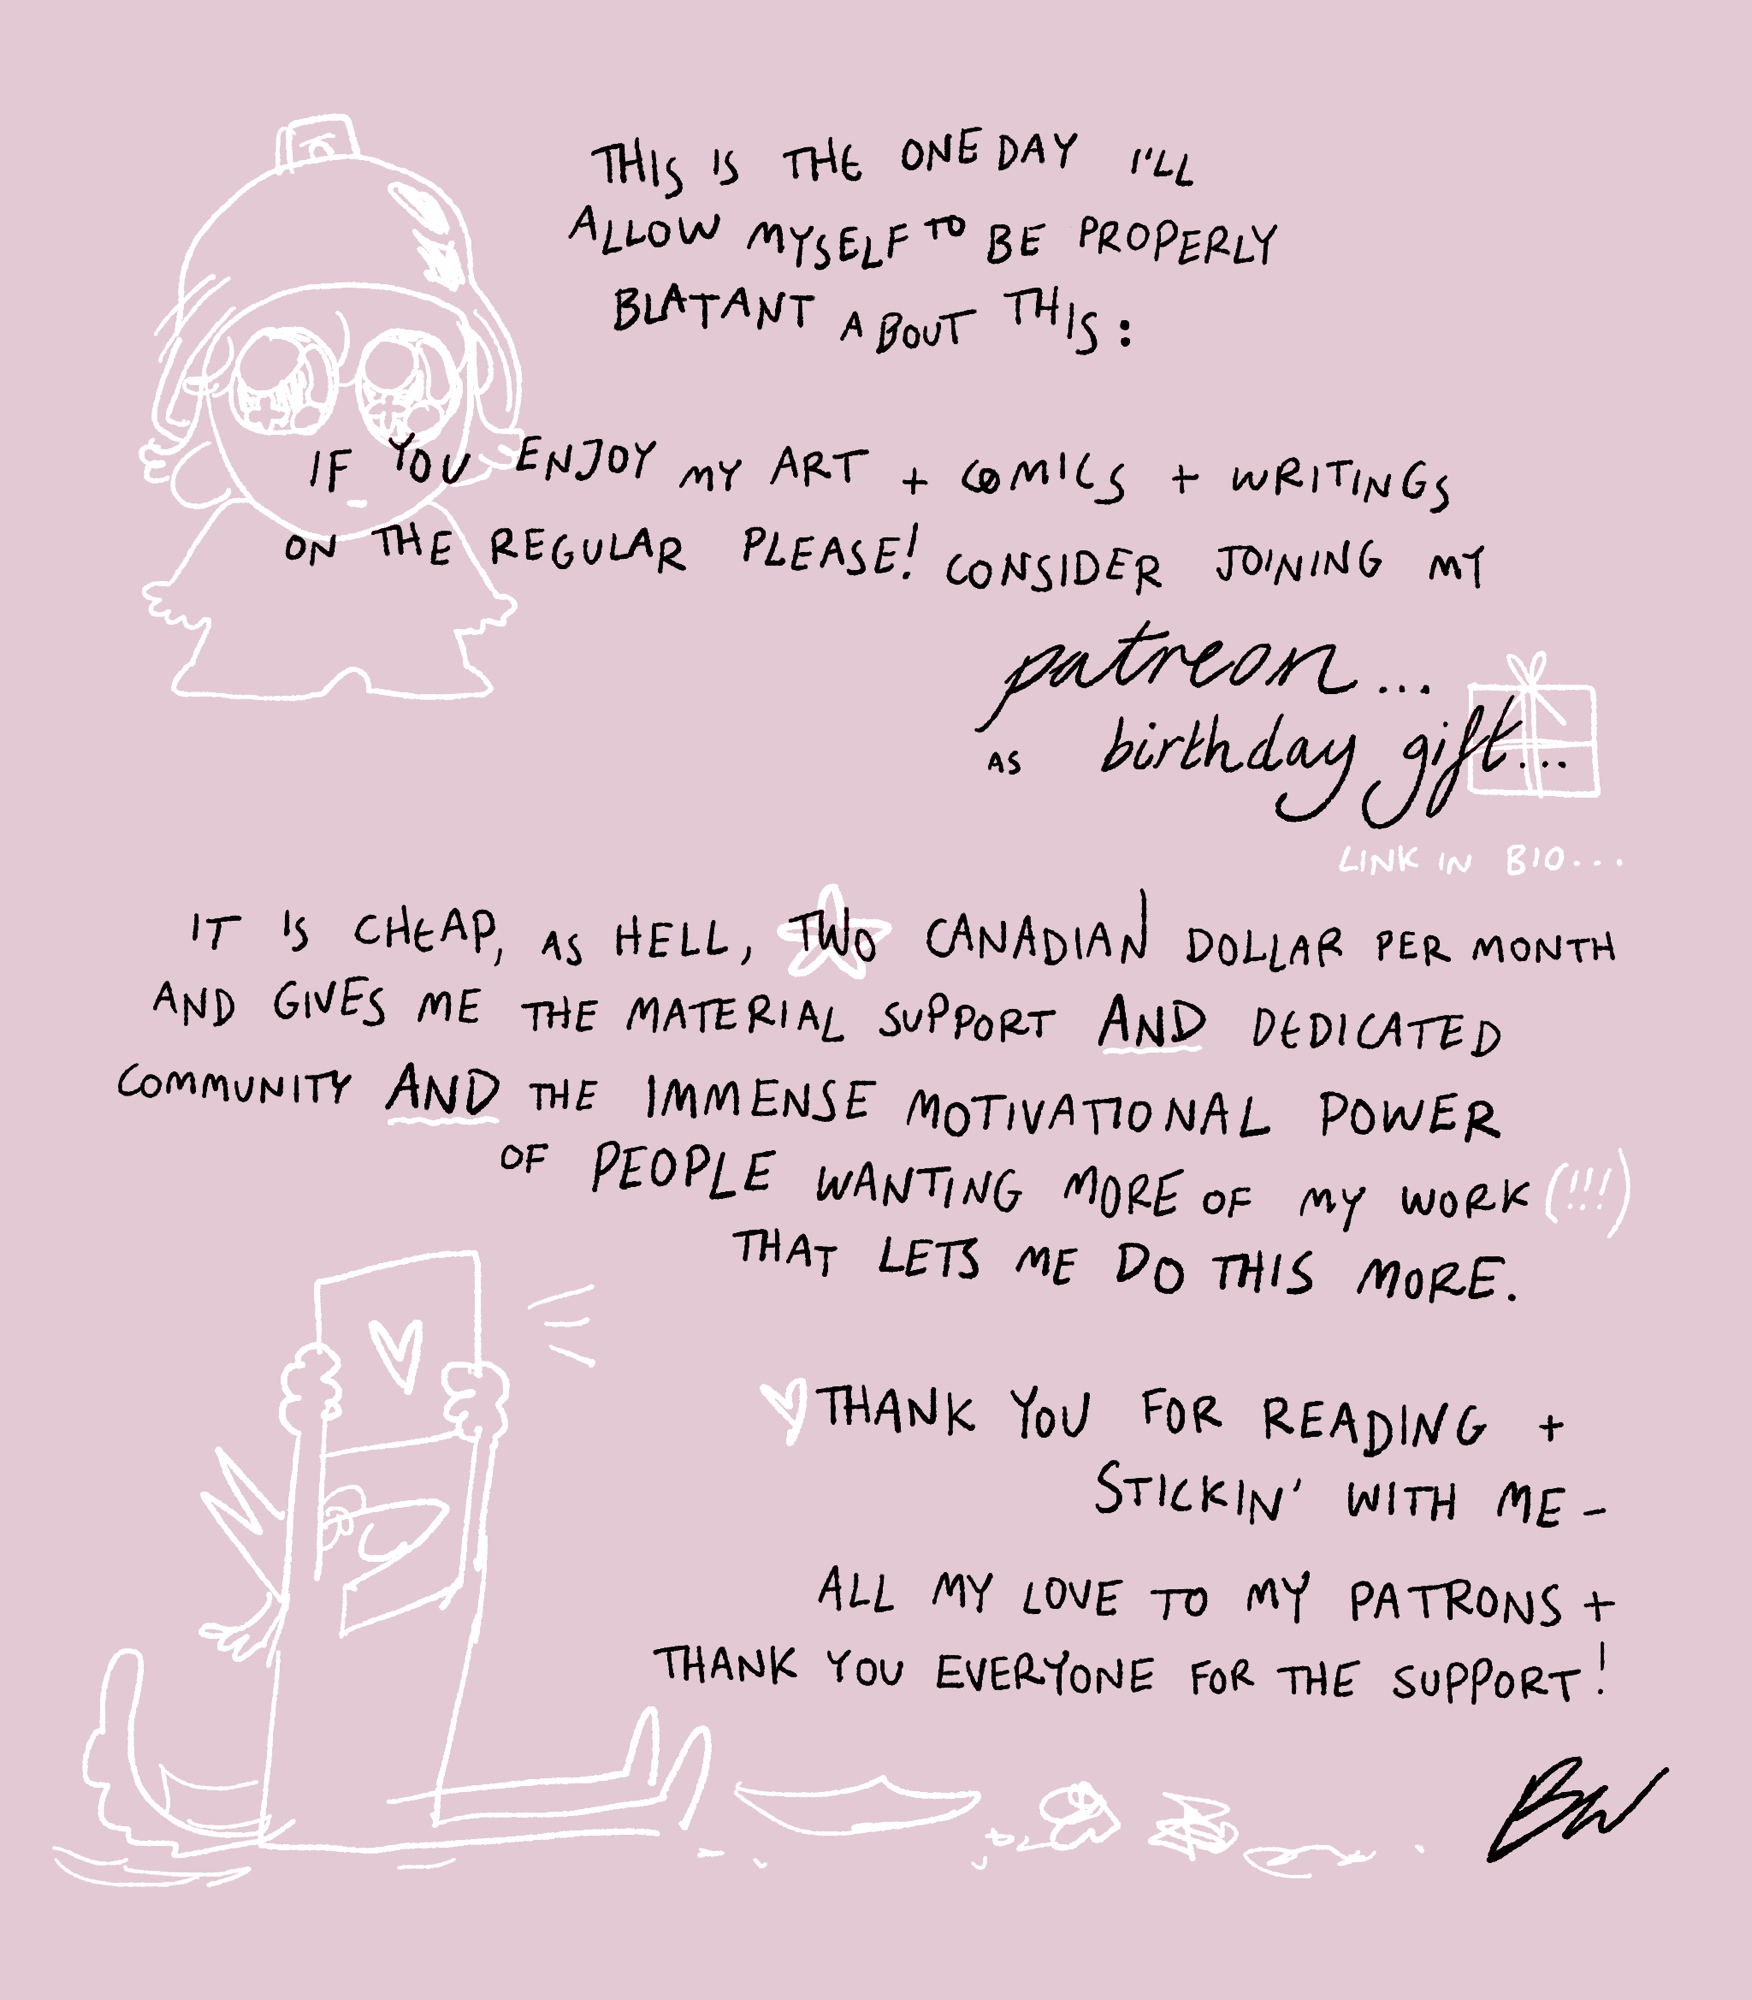 THIS IS THE ONE DAY I'LL
ALLOW MYSELF TO BE PROPERLY
BLATANT ABOUT THIS:
IF YOU ENJOY MY ART + COMICS + WRITINGS
ON THE REGULAR PLEASE! CONSIDER JOINING MY
patreon...
AS birthday gift...
LINK IN BIO...
IT IS CHEAP, AS HELL, TWO CANADIAN DOLLAR PER MONTH
AND GIVES ME THE MATERIAL SUPPORT AND DEDICATED
COMMUNITY AND THE IMMENSE MOTIVATIONAL POWER
OF PEOPLE WANTING MORE OF MY WORK (!!!)
THAT LETS ME DO THIS MORE.
THANK YOU FOR READING +
STICKIN' WITH ME -
ALL MY LOVE TO MY PATRONS +
THANK YOU EVERYONE FOR THE SUPPORT!
BW